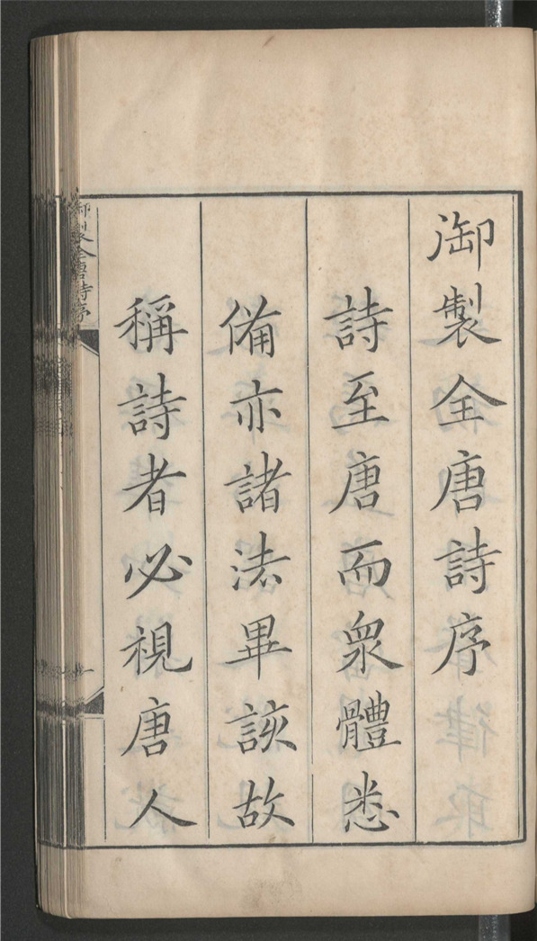 御製全唐詩序
詩至唐而衆體悉
備亦諸法畢該故
稱詩者必視唐人
御製全唐詩序